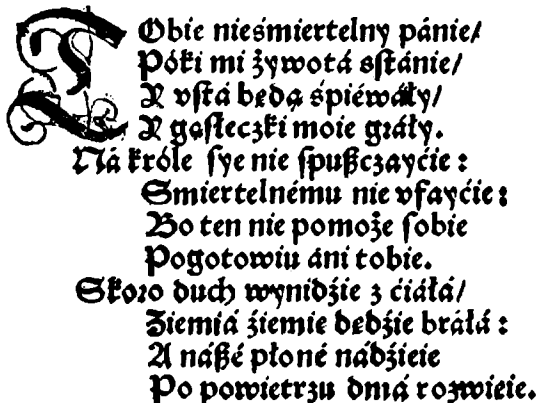 TObie nieśmiertelny pánie/
Póki mi żywotá sſtánie/
Y vſtá będą śpiéwáły/
Y gąſłeczki moie gráły.
Ná króle ſye nie ſpuſzczayćie :
Smiertelnému nie vfayćie :
Bo ten nie pomoże ſobie
Pogotowiu áni tobie.
Skoro duch wynidźie z ćiáłá/
Ziemiá źiemie będźie bráłá :
A náſzé płoné nádźieie
Po powietrzu dmą rozwieie.